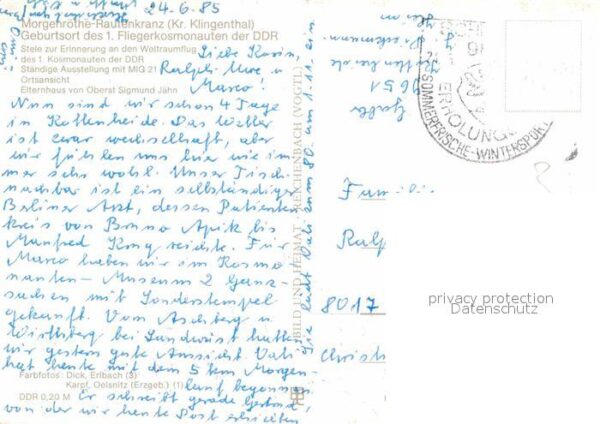 24.6.85
Morgenröthe-Rautenkranz (Kr. Klingenthal)
Geburtsort des 1. Fliegerkosmonauten der DDR
Stele zur Erinnerung an den Weltraumflug
des 1. Kosmonauten der DDR
Ständige Ausstellung mit MIG 21
Ortsansicht
Elternhaus von Oberst Sigmund Jähn
Liebe Karin,
Ralph-Uwe u
Marco!
Nun sind wir schon 4 Tage
in Kottenheide. Das Wetter
ist zwar wechselhaft, aber
wir fühlen uns hier wie im-
mer sehr wohl. Unser Tisch-
nachbar ist ein selbständiger
Berliner Arzt, dessen Patienten
kreis von Bruno Apitz bis
Manfred Krug reichte. Für
Marco haben wir im Kosmo
nauten-Museum 2 Ganz-
sachen mit Sonderstempel
gekauft. Vom Aschberg u
Wirthberg bei Landwüst hatten
wir gestern gute Aussicht. Vati
hat heute mit dem 5 km Morgen-
lauf begonnen.
Er schreibt gerade Gertrud,
von der wir heute Post erhielten
Farbfotos: Dick, Erlbach (3)
Karpf, Oelsnitz (Erzgeb.) (1)
DDR 0,20 M
BILD UND HEIMAT REICHENBACH (VOGTL)
Sie lädt Vati zum 80. am 1.11. ein
9651
ERHOLUNGS
SOMMERFRISCHE-WINTERSPORT
Famili
Ralp
8017
Christi
privacy protection
Datenschutz